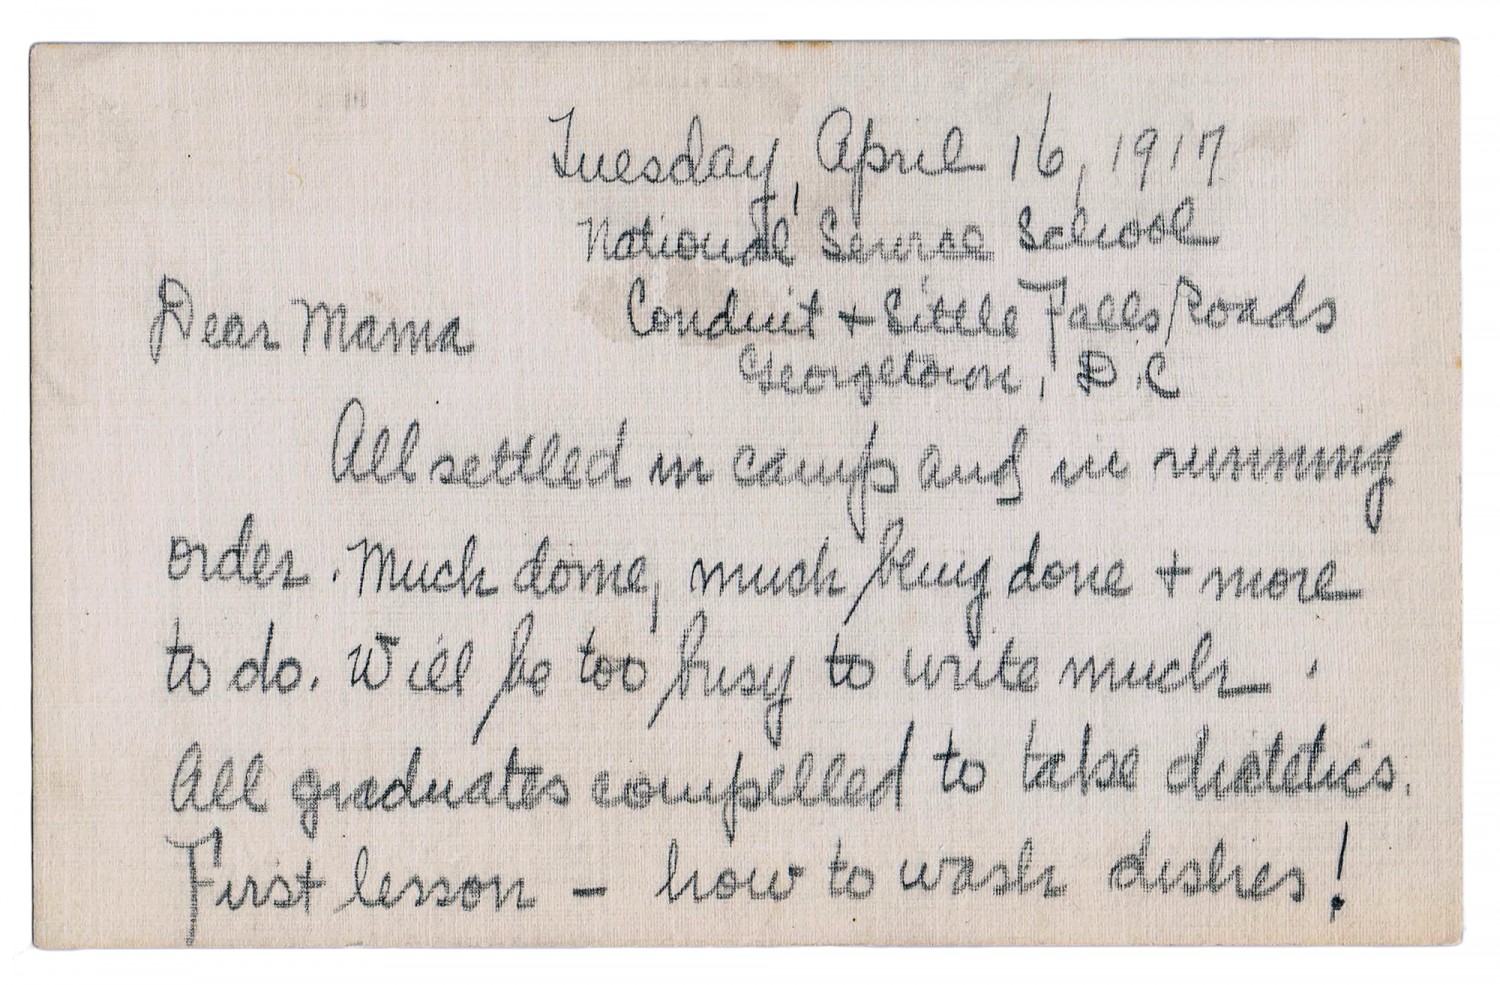 Tuesday, April 16, 1917
National Service School
Conduit + Little Falls Roads
Georgetown, D.C
Dear Mama
All settled in camp and in running
order. Much done, much being done + more
to do. Will be too busy to write much.
All graduates compelled to take dietetics.
First lesson – how to wash dishes!